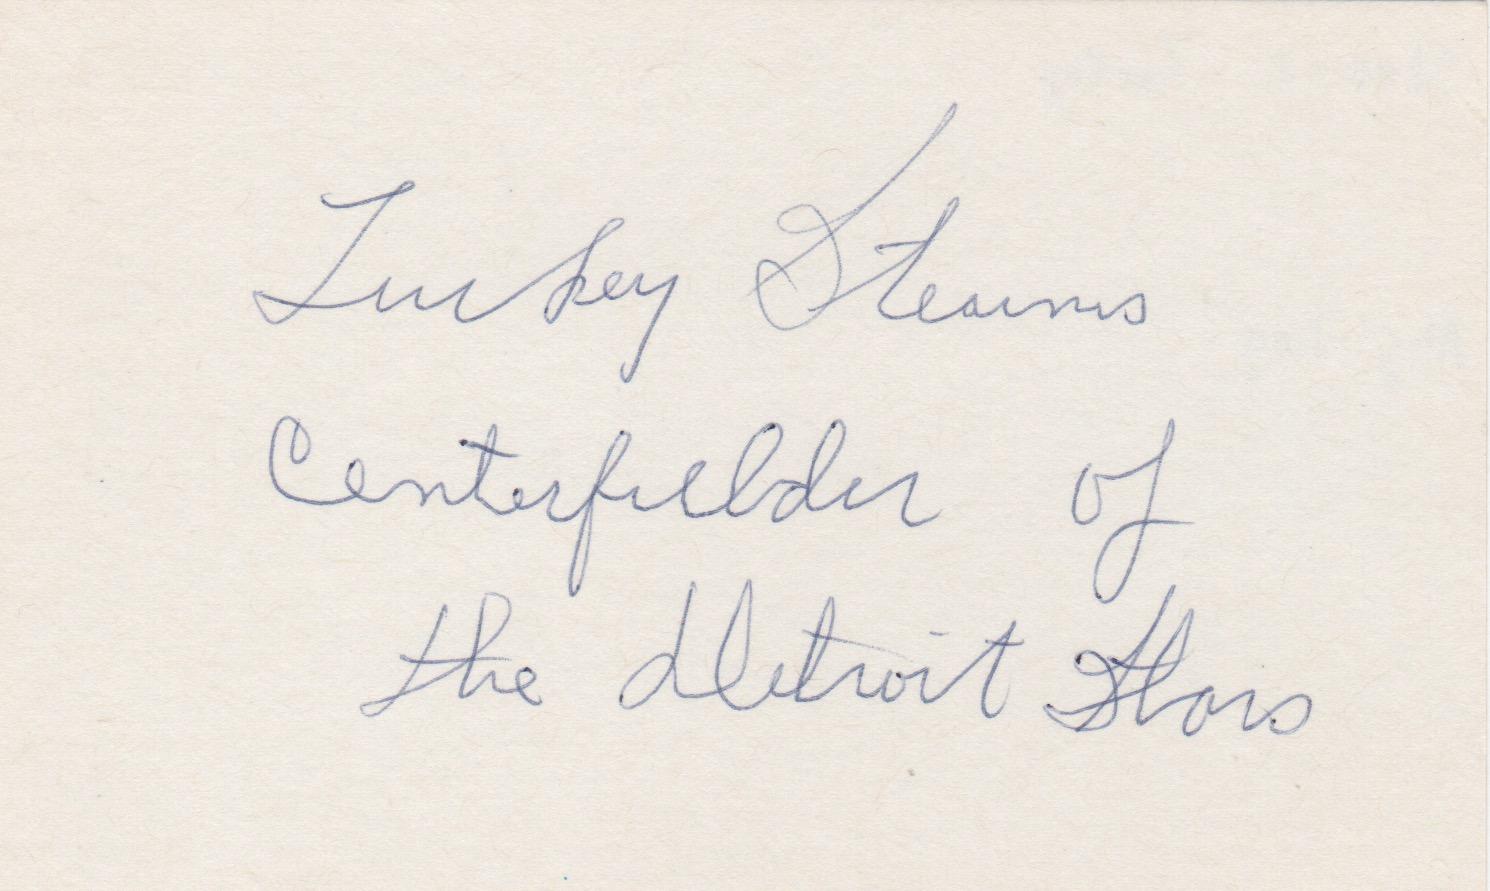 Turkey Stearns
Centerfielder of
the detroit Stars